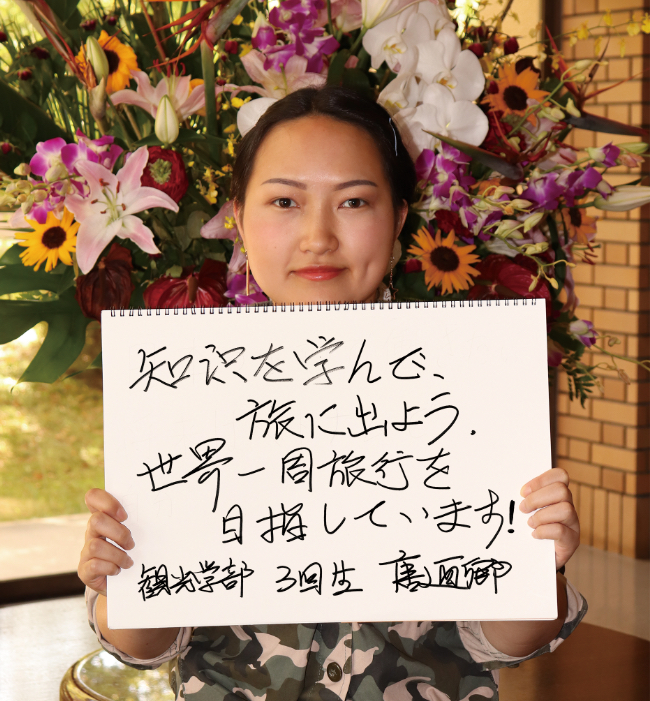 知识を学んで、
旅に出よう.
世界一周旅行を
目指しています!
観光学部 3回生